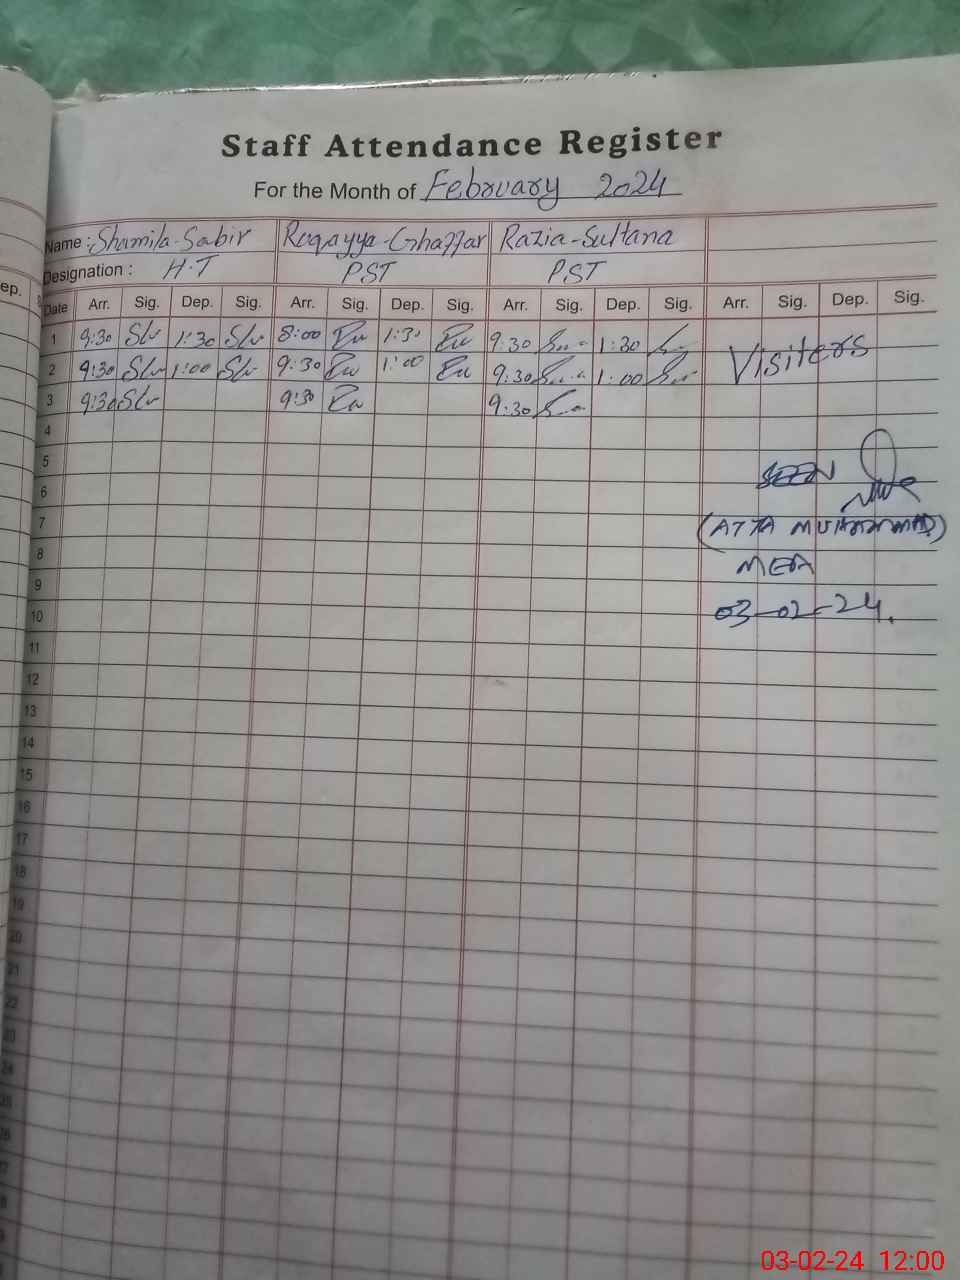 Staff Attendance Register
For the Month of February 2024
Name : Shamila-Sabir Ruqayya-Ghaffar Razia-Sultana
Designation : H.T PST PST
ep.
Date Arr. Sig. Dep. Sig. Arr. Sig. Dep. Sig. Arr. Sig. Dep. Sig. Arr. Sig. Dep. Sig.
1 9:30 1:30 8:00 1:30 9:30 1:30
2 9:30 1:00 9:30 1:00 9:30 1:00
Visiters
3 9:30 9:30 9:30
4
5
SEEN
6
7
(ATTA MUHAMMAD)
8
MEA
9
03-02-24.
10
11
12
13
14
15
16
17
18
19
20
21
22
23
24
25
26
03-02-24 12:00